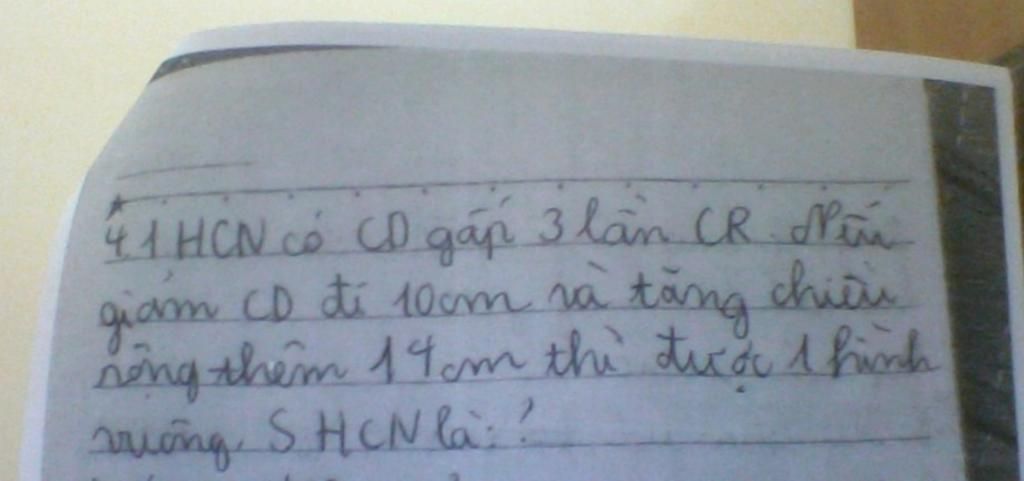 4. 1 HCN có CD gấp 3 lần CR. Nếu
giảm CD đi 10cm và tăng chiều
rộng thêm 14cm thì được 1 hình
vuông. S HCN là: ?